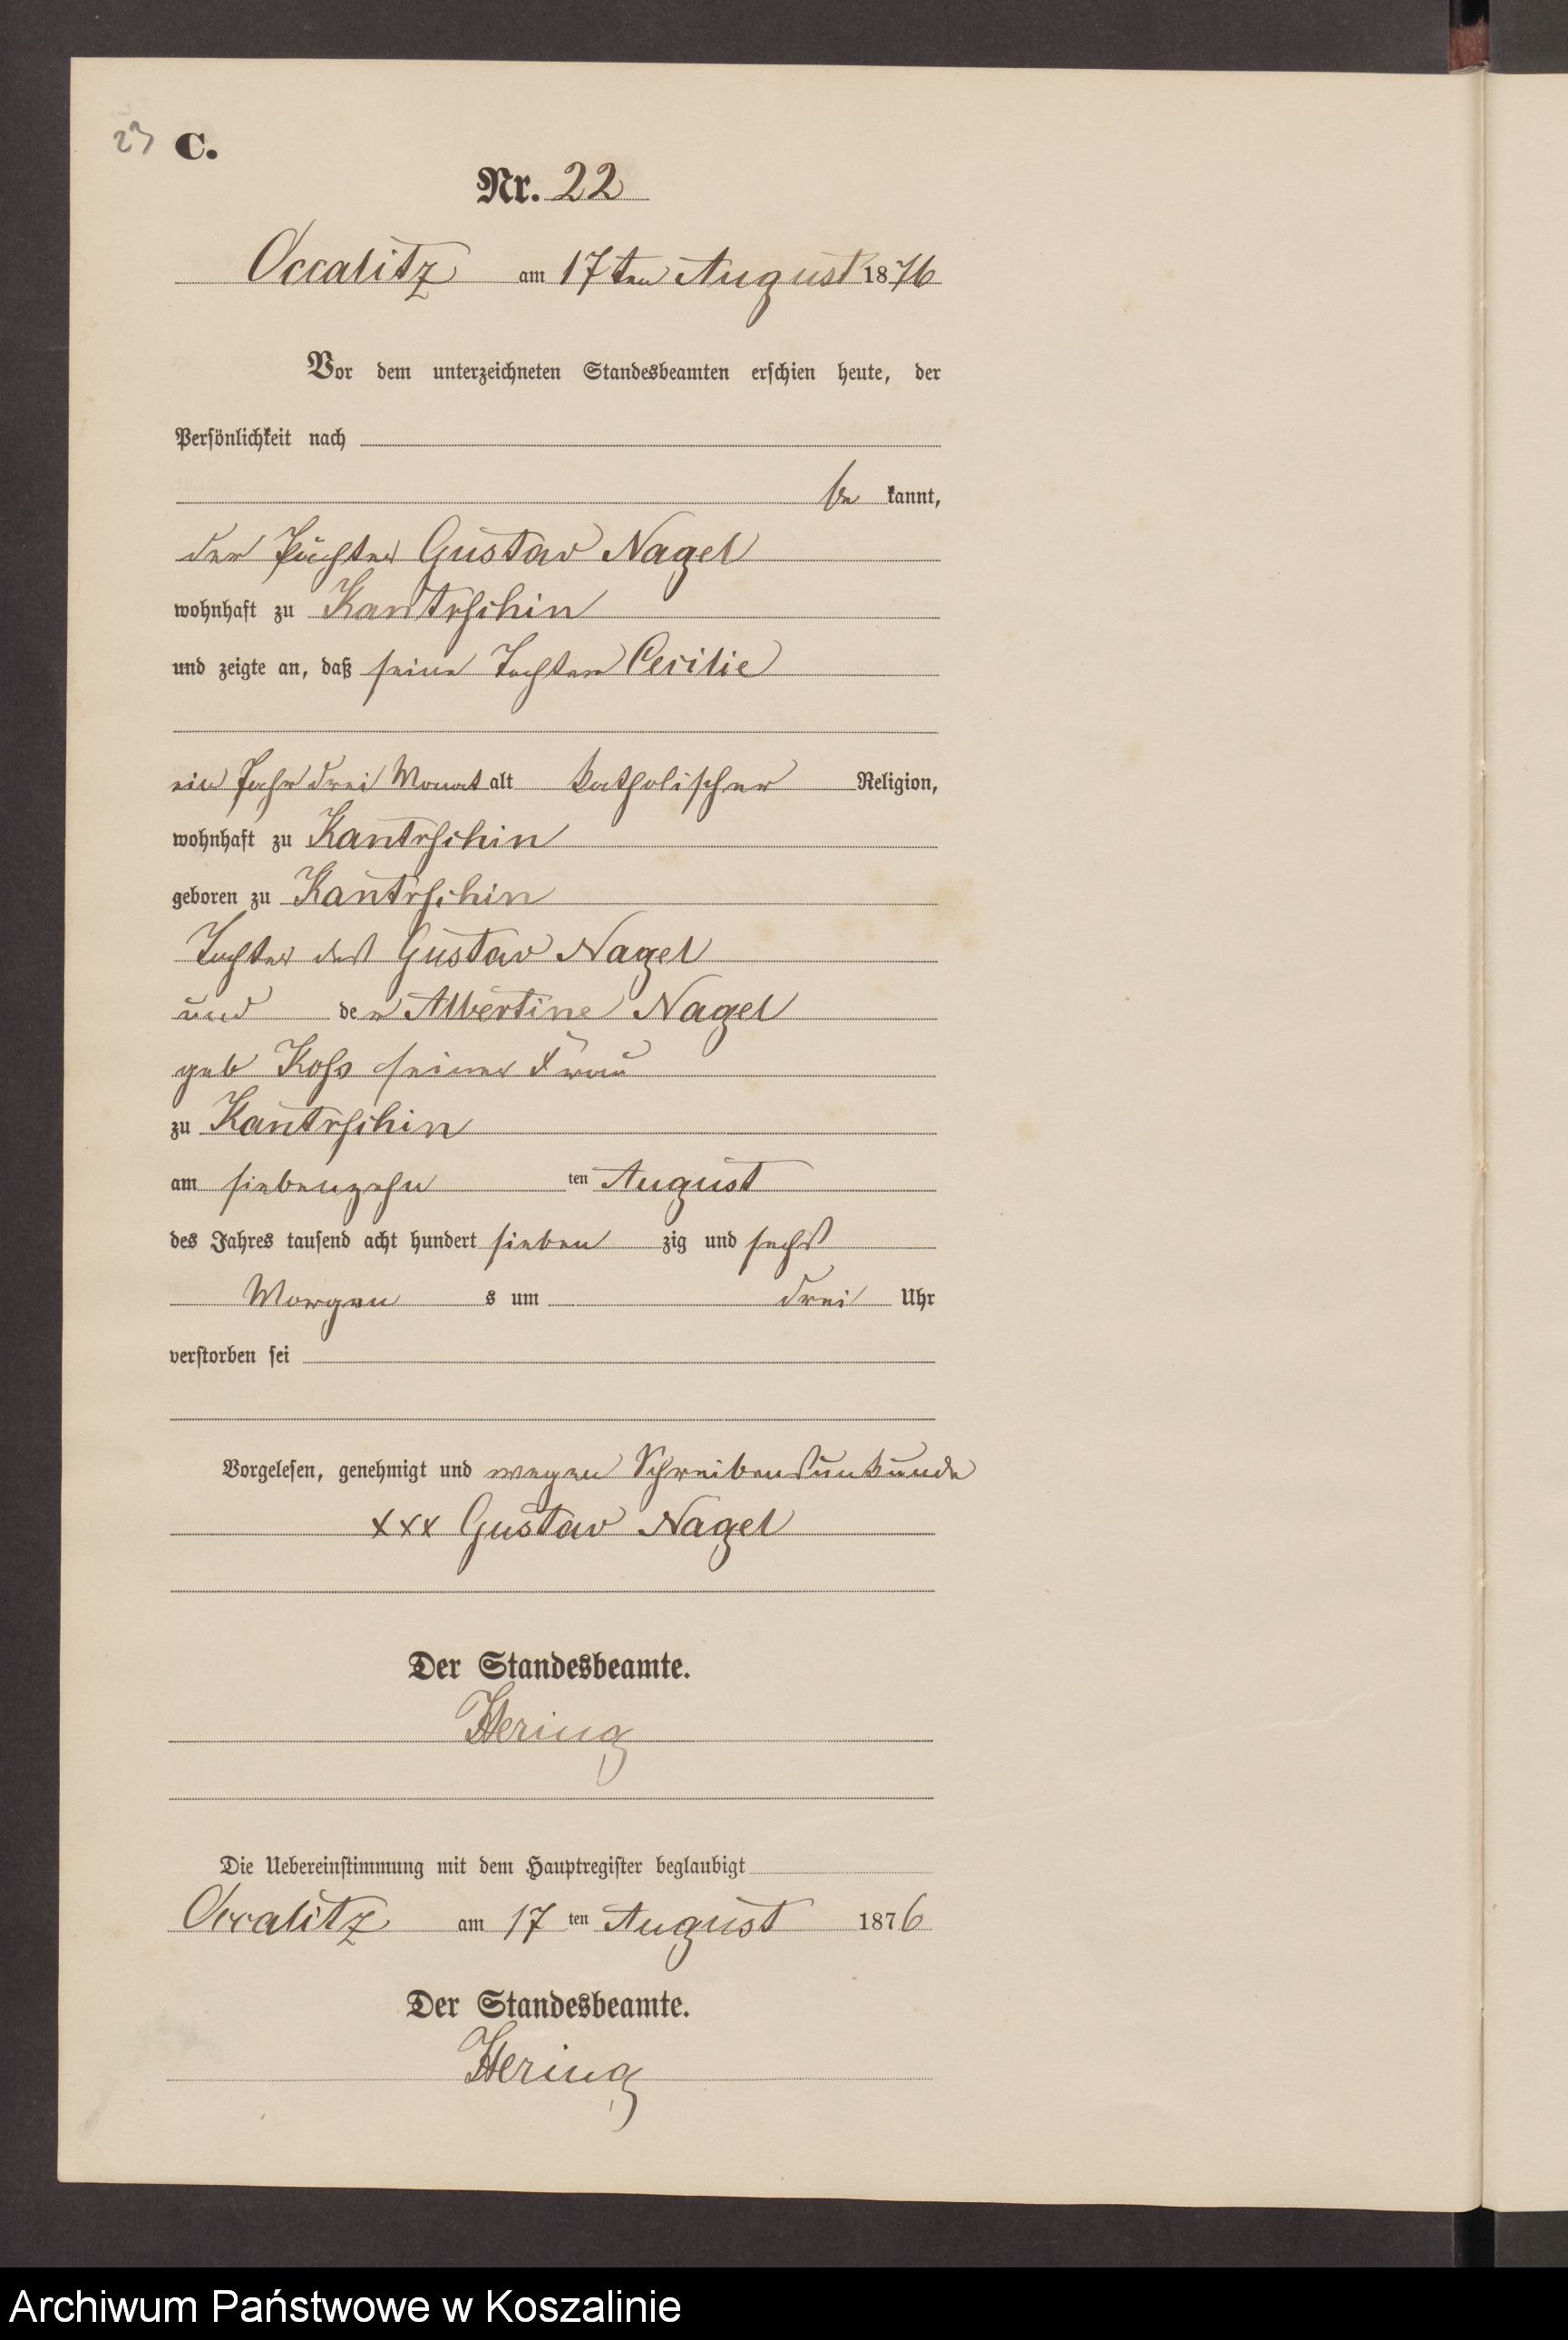 23 C.
Nr. 22
Occalitz am 17ten August 1876
Vor dem unterzeichneten Standesbeamten erschien heute, der
Persönlichkeit nach
be kannt,
der Pächter Gustav Nagel
wohnhaft zu Kantrschin
und zeigte an, daß seine Tochter Cecilie
ein Jahr drei Monat alt katholischer Religion,
wohnhaft zu Kantrschin
geboren zu Kantrschin
Tochter des Gustav Nagel
und der Albertine Nagel
geb Koss seiner Frau
zu Kantrschin
am siebenzehn ten August
des Jahres tausend acht hundert sieben zig und sechs
Morgen s um drei Uhr
verstorben sei
Vorgelesen, genehmigt und wegen Schreibensunkunde
xxx Gustav Nagel
Der Standesbeamte.
Hering
Die Uebereinstimmung mit dem Hauptregister beglaubigt
Occalitz am 17 ten August 1876
Der Standesbeamte.
Hering
Archiwum Państwowe w Koszalinie